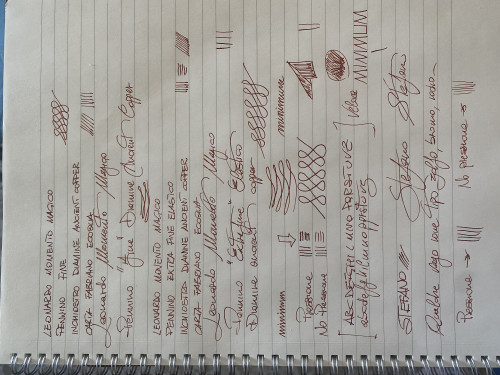 LEONARDO MOMENTO MAGICO
PENNINO FINE
INCHIOSTRO DIAMINE ANCIENT COPPER
CARTA FABRIANO ECOQUA
Leonardo Momento Magico
Pennino "Fine" Diamine Ancient Copper
LEONARDO MOMENTO MAGICO
PENNINO EXTRA FINE ELASTICO
INCHIOSTRO DIAMINE ANCIENT COPPER
CARTA FABRIANO ECOQUA
Leonardo Momento Magico
Pennino "Extra Fine" Elastico
Diamine ancient copper
minimum minimum
Pressione
No Pressione
ABCDEFGHILMNOPQRSTUVZ
abcdefghilmnopqrstuvz
Veloce
MINIMUM
STEFANO Stefano Stefano
Qualche riga
Pressione → No pressione →